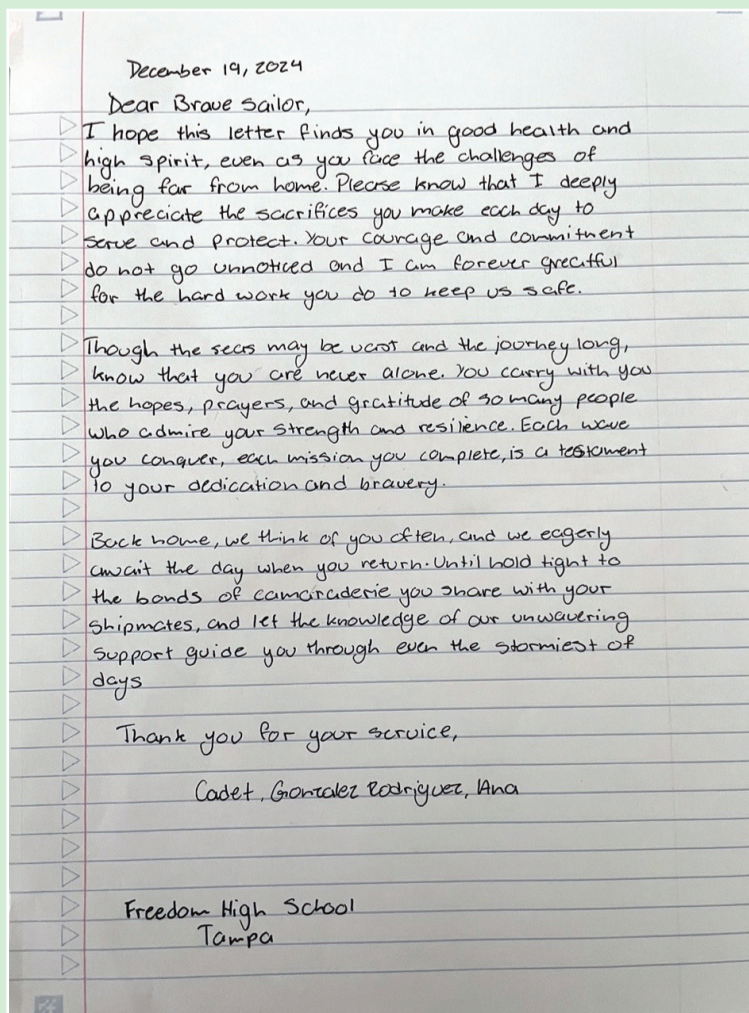 December 19, 2024
Dear Brave Sailor,
I hope this letter finds you in good health and
high spirit, even as you face the challenges of
being far from home. Please know that I deeply
appreciate the sacrifices you make each day to
serve and protect. Your courage and commitment
do not go unnoticed and I am forever greatful
for the hard work you do to keep us safe.
Though the seas may be vast and the journey long,
know that you are never alone. You carry with you
the hopes, prayers, and gratitude of so many people
who admire your strength and resilience. Each wave
you conquer, each mission you complete, is a testament
to your dedication and bravery.
Back home, we think of you often, and we eagerly
await the day when you return. Until hold tight to
the bonds of camaraderie you share with your
shipmates, and let the knowledge of our unwavering
support guide you through even the stormiest of
days
Thank you for your service,
Cadet, Gonzalez Rodriguez, Ana
Freedom High School
Tampa